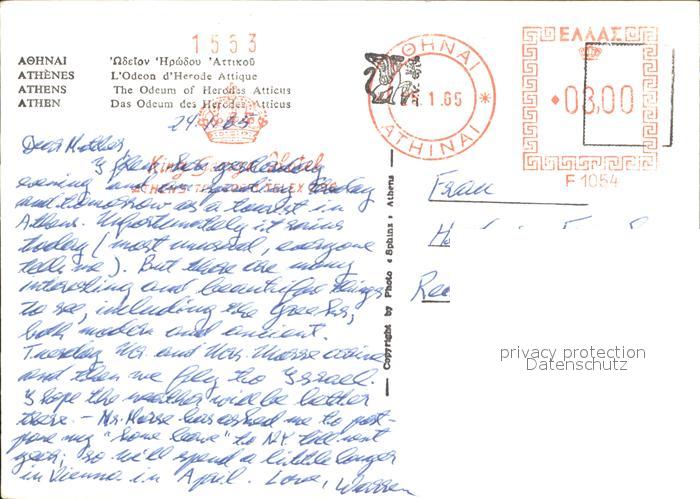 1553
ΑΘΗΝΑΙ Ὠδεῖον Ἡρώδου Ἀττικοῦ
ATHÈNES L'Odeon d'Herode Attique
ATHENS The Odeum of Herodes Atticus
ATHEN Das Odeum des Herodes Atticus
ΑΘΗΝΑΙ
1.65
ATHINAI
ΕΛΛΑΣ
03,00
F 1054
King George Hotel
ATHENS
24.1.65
Dear Mother,
I flew here yesterday
evening and am spending today
and tomorrow as a tourist in
Athens. Unfortunately it rains
today (most unusual, everyone
tells me). But there are many
interesting and beautiful things
to see, including the Greeks,
both modern and ancient.
Tuesday Mr. and Mrs. Morse arrive
and then we fly to Israel.
I hope the weather will be better
there. – Mr. Morse has asked me to post-
pone my "home leave" to NY till next
year; so we'll spend a little longer
in Vienna in April. Love, Warren
Copyright by Photo «Sphinx» Athens
Frau
privacy protection
Datenschutz